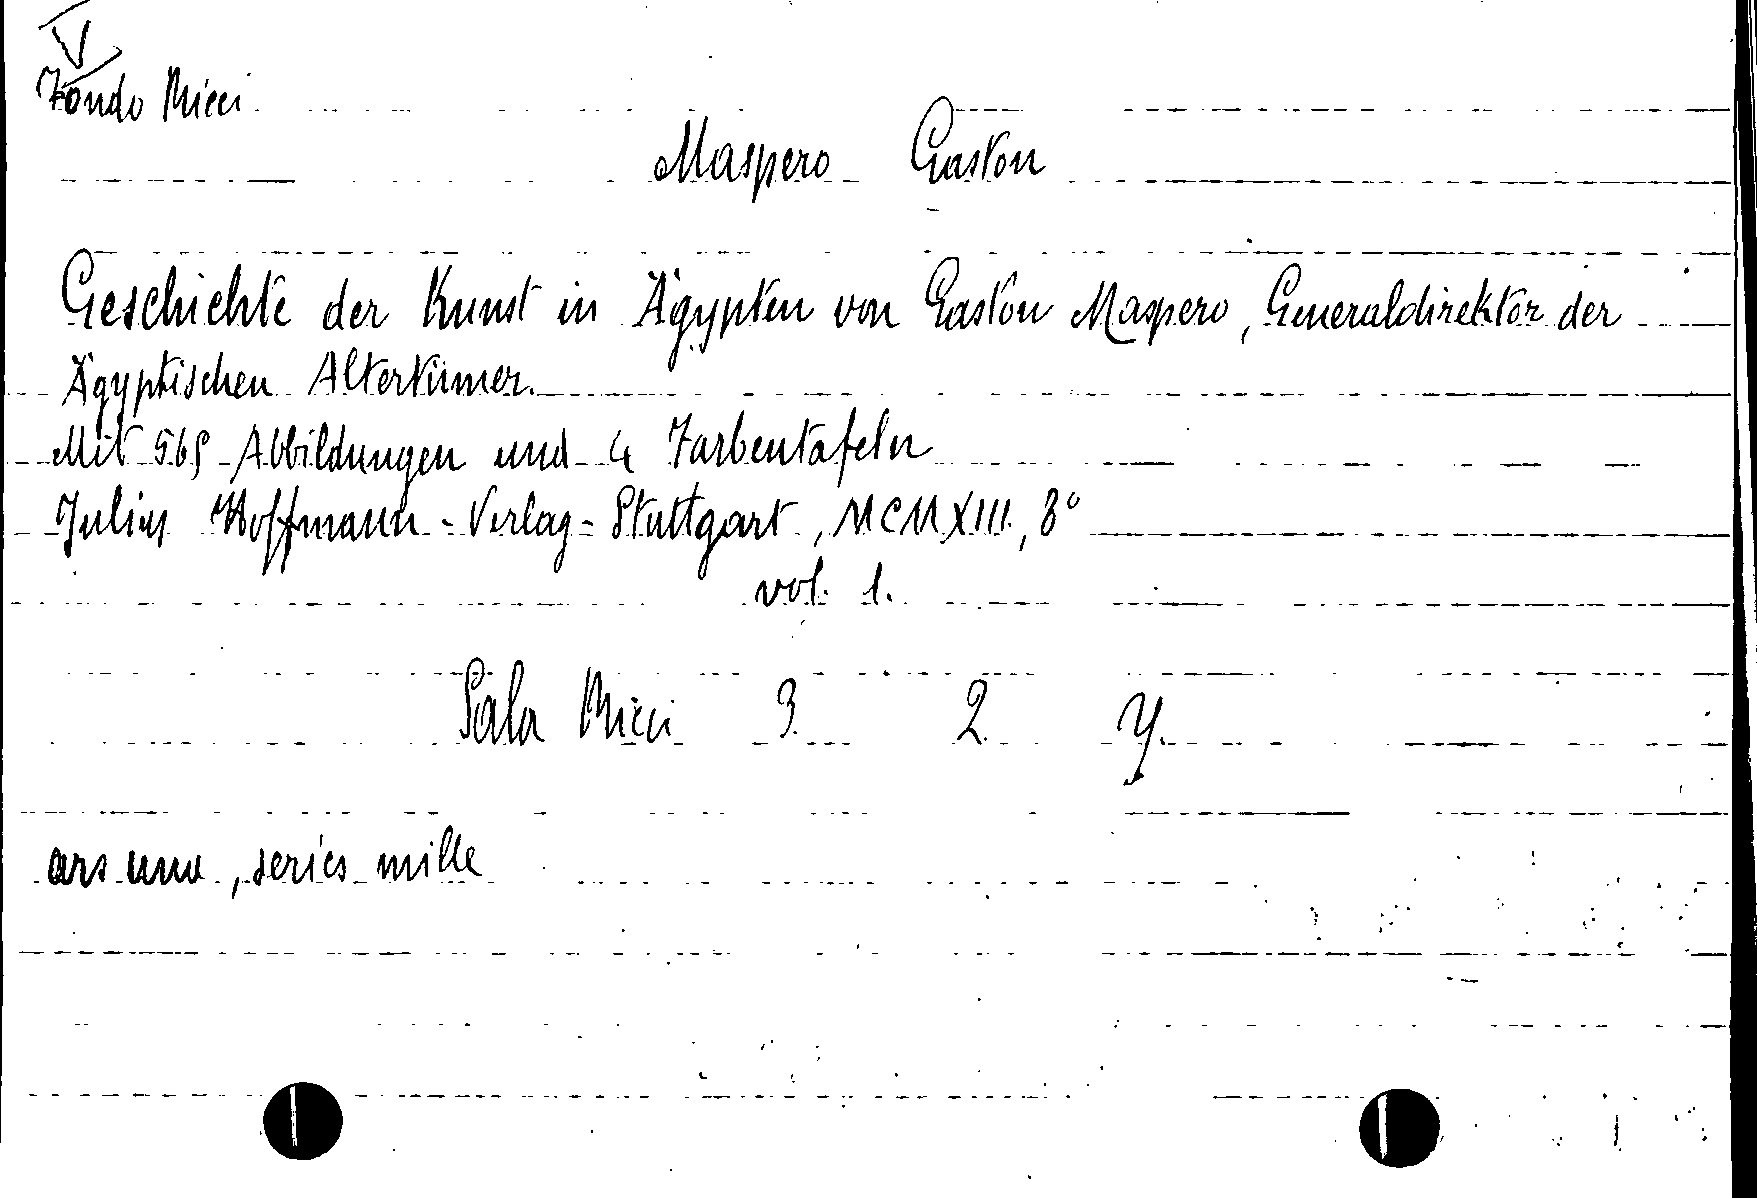 V
Fondo Ricci
Maspero Gaston
Geschichte der Kunst in Ägypten von Gaston Maspero, Generaldirektor der
Ägyptischen Altertümer.
Mit 565 Abbildungen und 4 Farbentafeln
Julius Hoffmann - Verlag - Stuttgart, MCMXIII, 8°
vol. 1.
Sala Ricci 3 2 y.
ars una, series mille